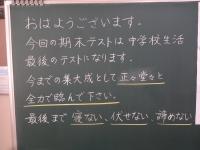 おはようございます。
今回の期末テストは中学校生活
最後のテストになります。
今までの集大成として正々堂々と
全力で臨んで下さい。
最後まで寝ない、伏せない、諦めない